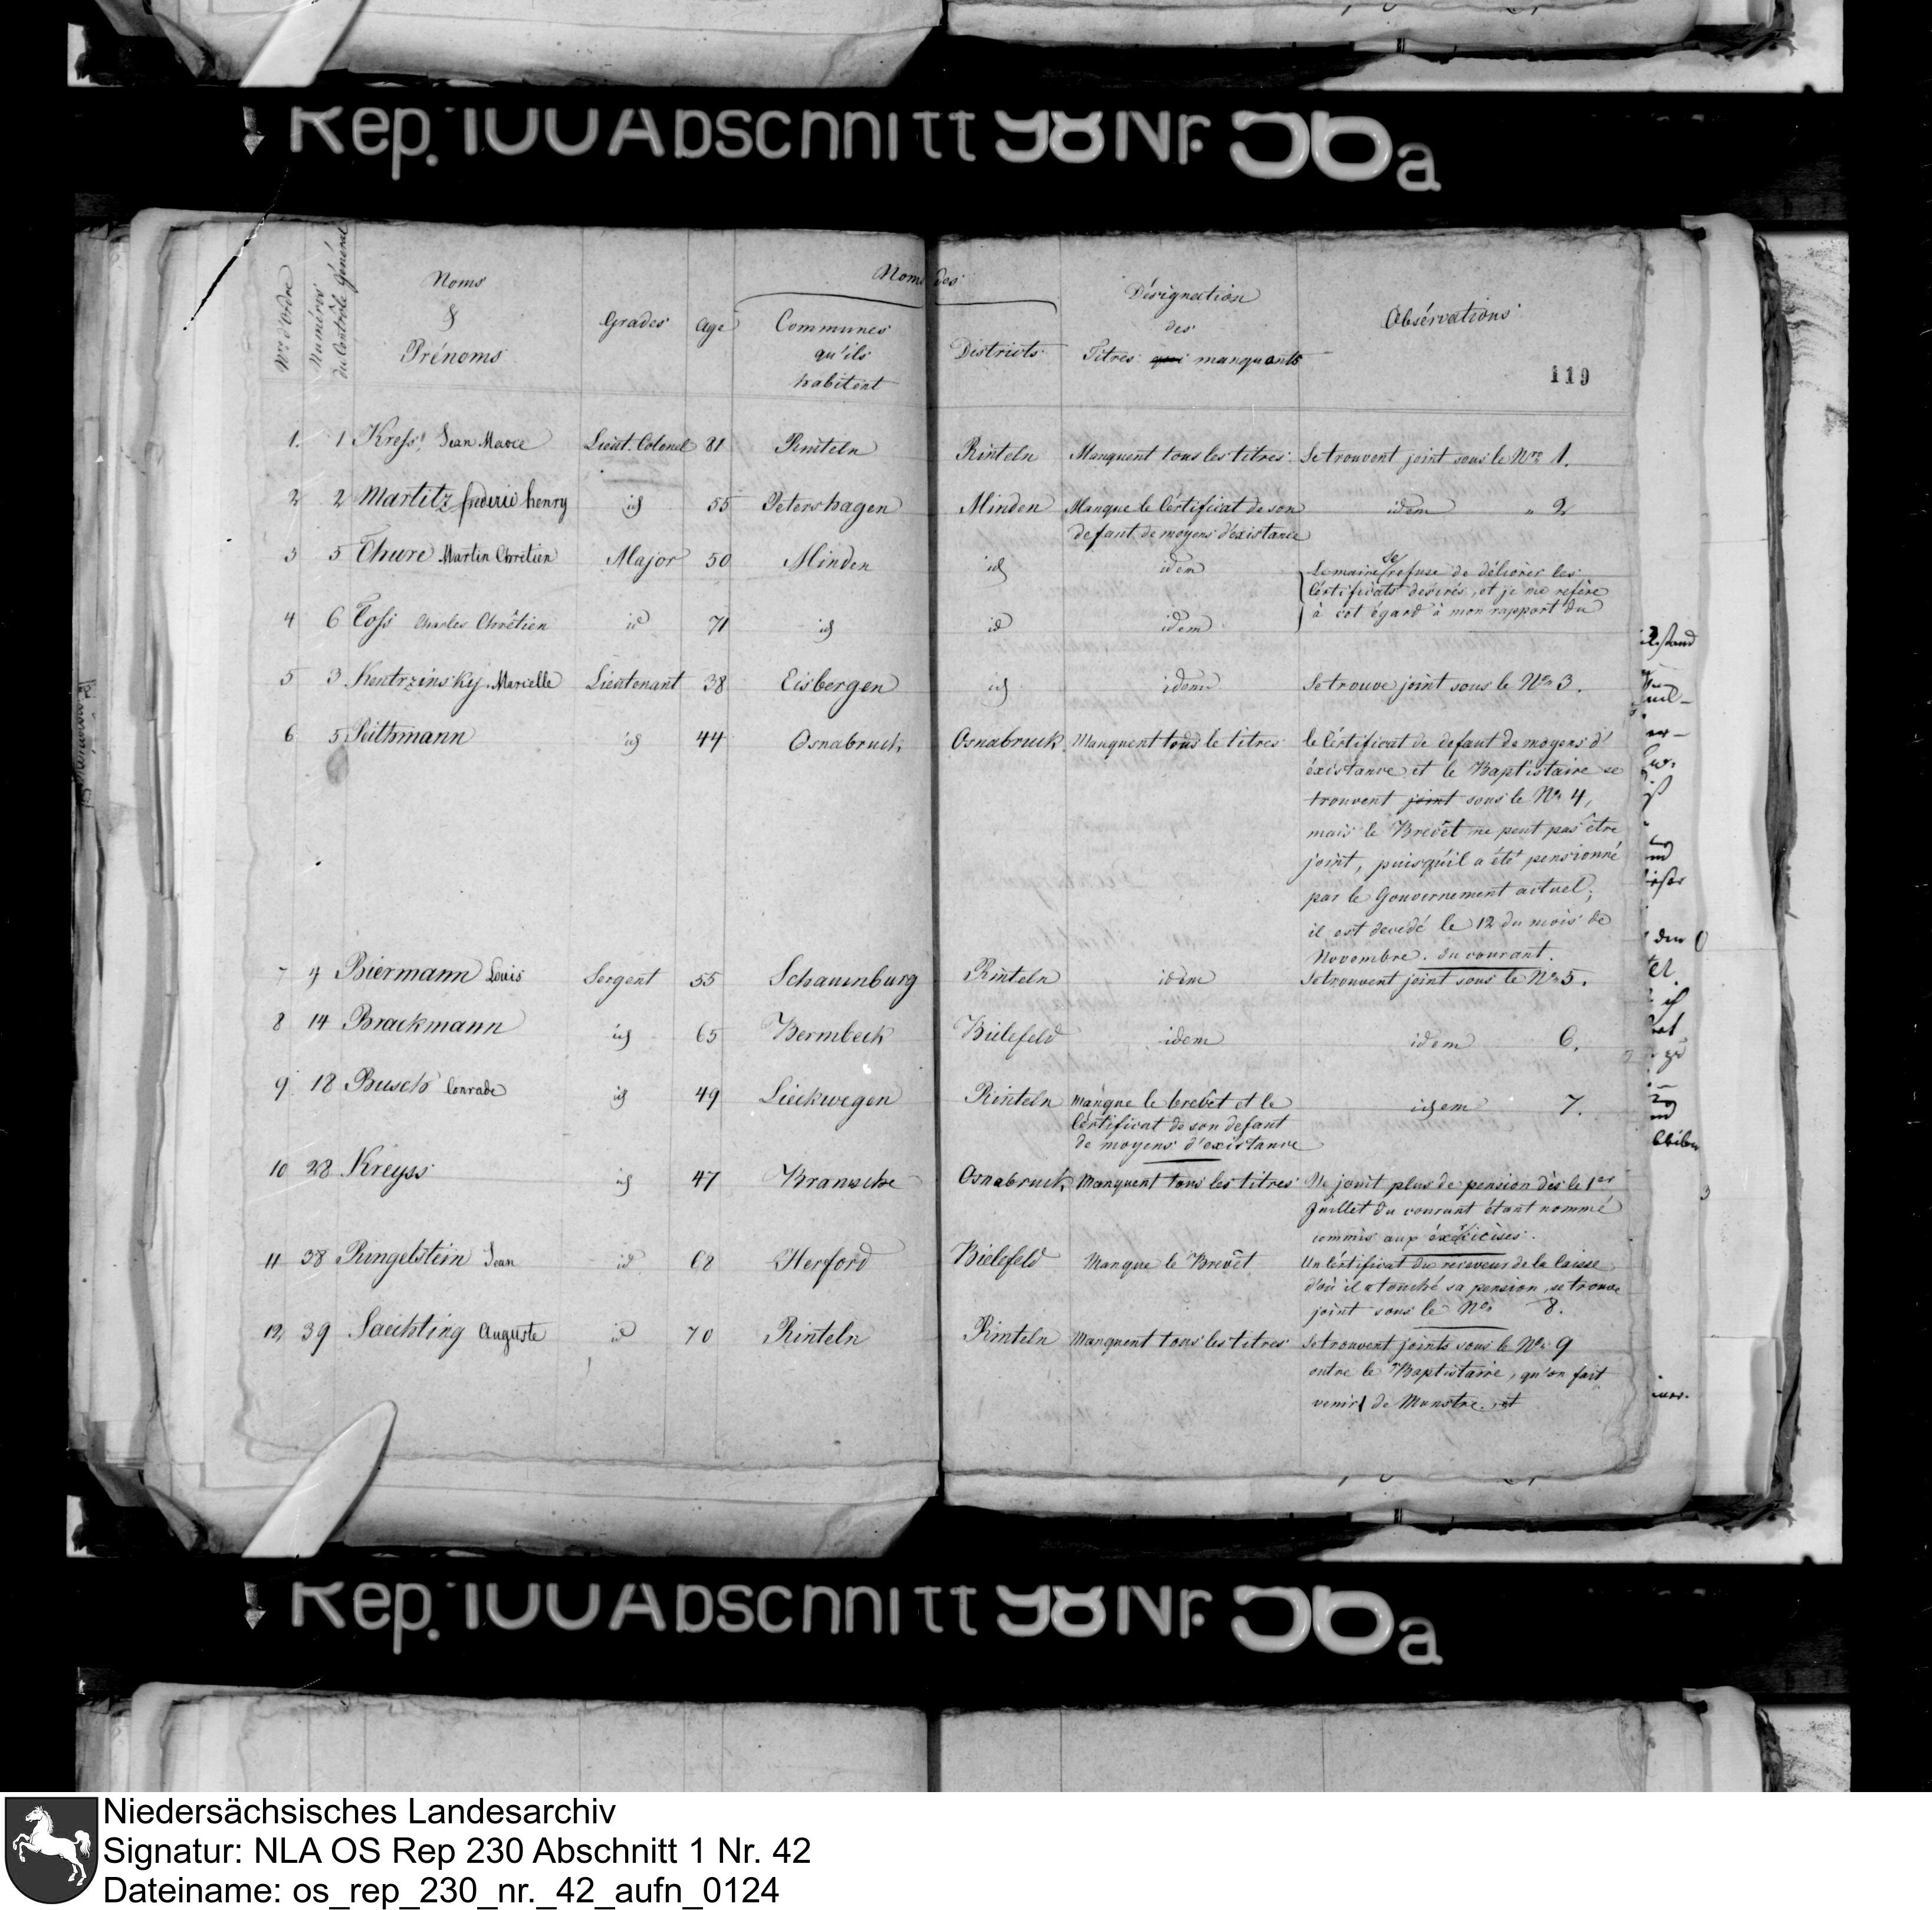 Rep. 100 Abschnitt 98 Nr. 56a
Nros d'Ordre
Numéros du Contrôle Général
Noms & Prénoms
Grades
Age
Noms des
Communes qu'ils habitent
Districts
Désignation des Titres qui manquants
Obsérvations
119
1. 1 Kress, Jean Marce Lieut. Colonel 81 Rinteln Rinteln Manquent tous les titres. Se trouvent joint sous le Nro 1.
2 2 Martitz frederic henry id 55 Petershagen Minden Manque le Cértificat de son idem " 2
defaut de moyens d'éxistance
3 5 Thure Martin Chrétien Major 50 Minden id idem Le maire se refuse de délivrer les
Cértificats desirés, et je me refère
4 6 Toss Charles Chrêtien id 71 id id idem à cet égard à mon rapport du
5 3 Kentrzinsky Marcelle Lieutenant 38 Eisbergen id idem Se trouve joint sous le No 3.
6 5 Peithmann id 44 Osnabruck Osnabruck Manquent tous le titres le Cértificat de defaut de moyens d'
éxistance et le Baptistaire se
trouvent joint sous le No 4,
mais le Brevêt ne peut pas être
joint, puisqu'il a été pensionné
par le Gouvernement actuel;
il est decidé le 12 du mois de
Novembre. du courant.
7 4 Biermann Louis Sergent 55 Schaumburg Rinteln idem Se trouvent joint sous le No 5.
8 14 Brackmann id 65 Bermbeck Bielefeld idem idem 6.
9 18 Busch Conrade id 49 Lieckwegen Rinteln manque le brevêt et le idem 7.
Cértificat de son defaut
de moyens d'existance
10 28 Kreyss id 47 Bramsche Osnabruck Manquent tous les titres Ne jouit plus de pension dès le 1er
Juillet du courant étant nommé
commis aux
11 38 Ringelstein Jean id 68 Herford Bielefeld Manque le Brevêt Un Cértificat du receveur de la Caisse
d'où il a touché sa pension, se trouve
joint sous le No 8.
12, 39 Saechting Auguste id 70 Rinteln Rinteln Manquent tous les titres Se trouvent joints sous le No 9
outre le Baptistaire, qu'on fait
venir de Munstre. et
Rep. 100 Abschnitt 98 Nr. 56a
Niedersächsisches Landesarchiv
Signatur: NLA OS Rep 230 Abschnitt 1 Nr. 42
Dateiname: os_rep_230_nr._42_aufn_0124